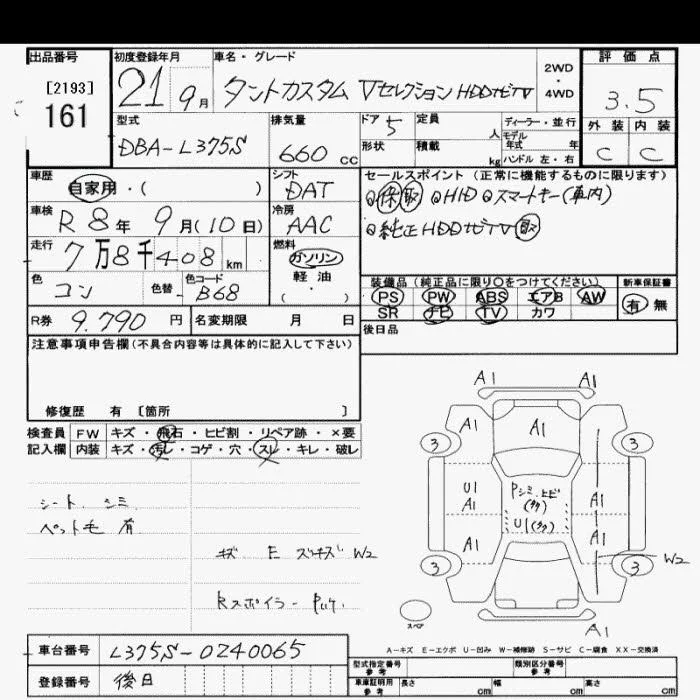 出品番号 初度登録年月 車名・グレード 2WD・4WD 評価点
[2193]
161
21 9月 タントカスタム VセレクションHDDナビTV 3.5
型式 排気量 ドア 5 定員 人 ディーラー・並行 外装 内装
DBA-L375S 660 cc 形状 積載 kg モデル年式 年 ハンドル 左・右 C C
車歴 シフト セールスポイント (正常に機能するものに限ります)
自家用・( ) DAT ◎保取 ◎HID ◎スマートキー(車内)
車検 R8年 9月(10日) 冷房 AAC ◎純正HDDナビTV取
走行 7万8千408km 燃料 ガソリン 軽油 ( ・ )
色 コン 色替 色コード B68
装備品 (純正品に限り○をつけてください) 新車保証書
PS PW ABS エアB AW 有 無
SR ナビ TV カワ
R券 9,790円 名変期限 月 日 後日品
注意事項申告欄 (不具合内容等は具体的に記入して下さい)
修復歴 有 [箇所 ]
検査員 FW キズ・飛石・ヒビ割・リペア跡・×要
記入欄 内装 キズ・汚レ・コゲ・穴・スレ・キレ・破レ
シート シミ
ペット毛 有
キズ E ズキズ W2
Rスポイラー
A1 A1
A1 A1
3 3
U1 A1 Pシミ、ヒビ(多) A1
A1 U1(多) A1
3 3 W2
スペア A1
A-キズ E-エクボ U-凹み W-補修跡 S-サビ C-腐食 XX-交換済
車台番号 L375S-0240065
登録番号 後日
型式指定番号 参考 類別区分番号 参考
車庫証明用 参考 長さ cm 幅 cm 高さ cm